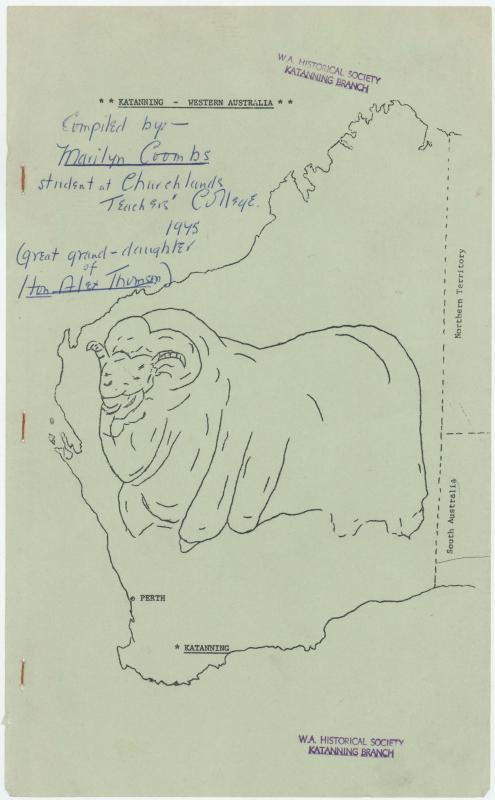 W.A. HISTORICAL SOCIETY
KATANNING BRANCH
* * KATANNING - WESTERN AUSTRALIA * *
Compiled by:-
Marilyn Coombs
student at Churchlands
Teachers' College.
1975
(great grand-daughter
of
Hon. Alex Thomson)
Northern Territory
South Australia
PERTH
* KATANNING
W.A. HISTORICAL SOCIETY
KATANNING BRANCH